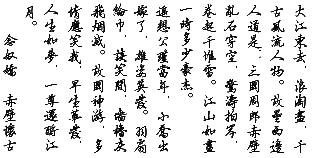 大江東去，浪淘盡，千
古風流人物。故壘西邊，
人道是，三國周郎赤壁。
亂石穿空，驚濤拍岸，
卷起千堆雪。江山如畫，
一時多少豪杰。
遙想公瑾當年，小喬出
嫁了，雄姿英發。羽扇
綸巾，談笑間，檣櫓灰
飛煙滅。故國神游，多
情應笑我，早生華發。
人生如夢，一尊還酹江
月。
念奴嬌 赤壁懷古